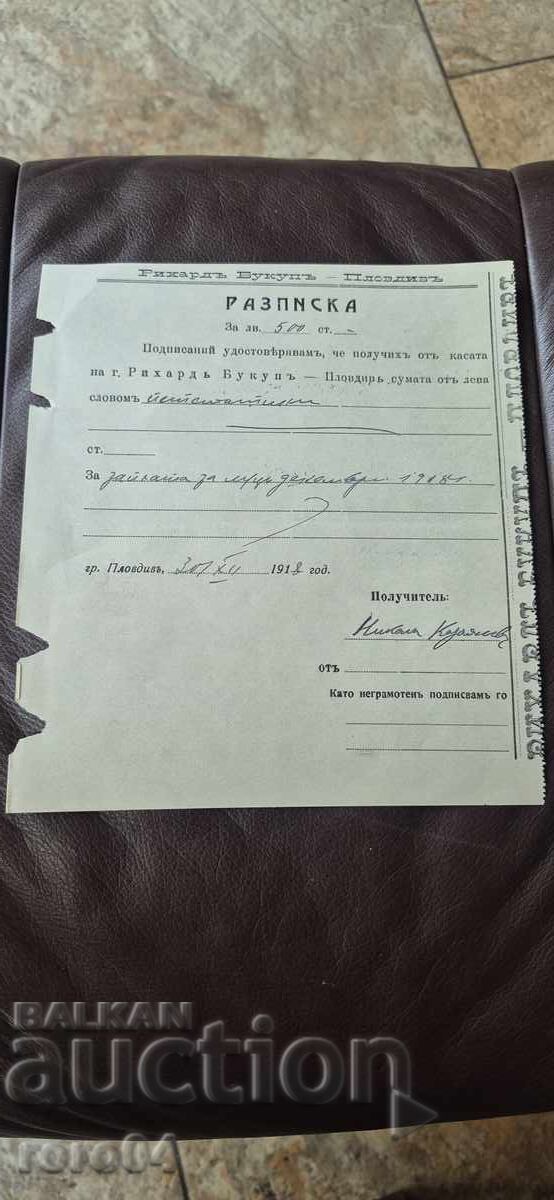 Рихардъ Букупъ — Пловдивъ
РАЗПИСКА
За лв. 500 ст. –
Подписаний удостовѣрявамъ, че получихъ отъ касата
на г. Рихардъ Букупъ — Пловдивъ сумата отъ лева
словомъ петстотинъ
ст.
За заплата за м-цъ декемврий 1918 г.
гр. Пловдивъ, 30/XII 1918 год.
Получитель:
Никола
отъ
Като неграмотенъ подписвамъ го
РИХАРДЪ БУКУПЪ — ПЛОВДИВЪ
BALKAN
auction
roro04